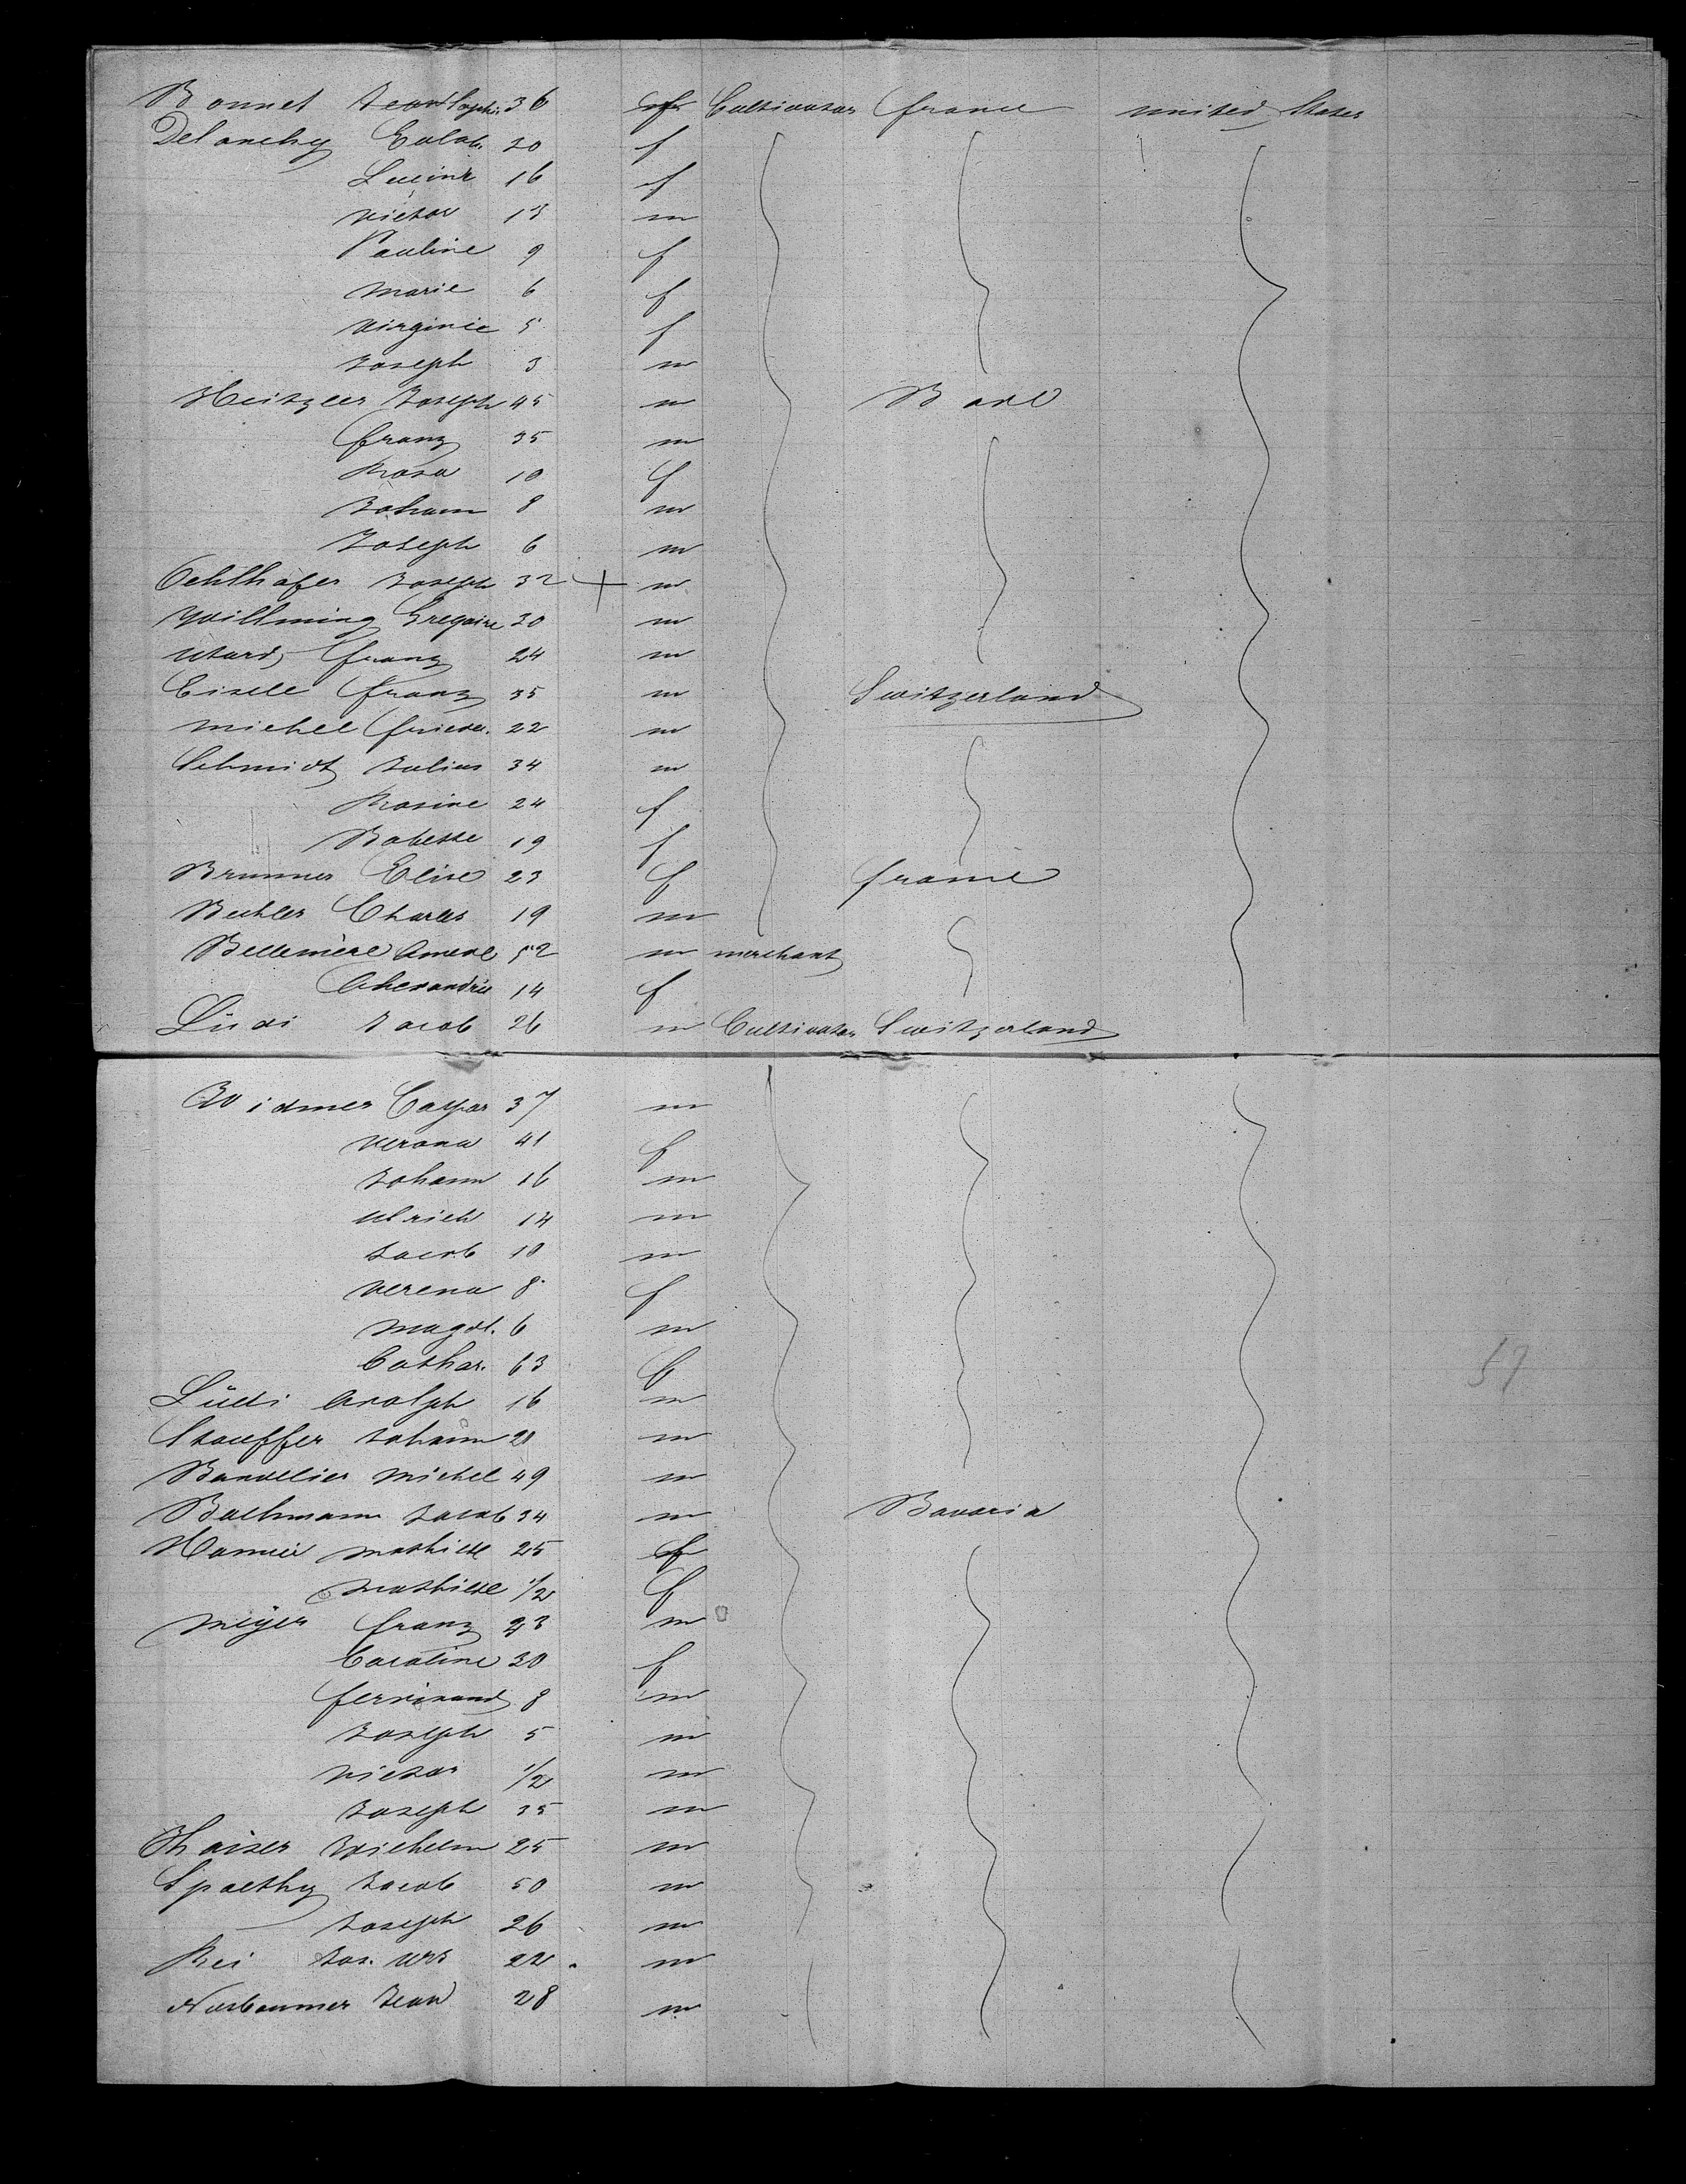 Bonnet Jean Sophie 36 f Cultivator france united States
Delanchy Eulal. 20 f
Lucine 16 f
Victor 13 m
Pauline 9 f
Marie 6 f
Virginie 5 f
Joseph 3 m
Heitzler Joseph 45 m Bade
franz 35 m
Rosa 10 f
Johann 8 m
Joseph 6 m
Oehlhafer Joseph 32 + m
Willming Gregoire 30 m
Utard franz 24 m
Eisele franz 35 m Switzerland
Michel frieder. 22 m
Schmidt Julius 34 m
Rosine 24 f
Babette 19 f
Brunner Elise 23 f france
Bechler Charles 19 m
Bellemère Amede 52 m merchant
Alexandrie 14 f
Lüdi Jacob 26 m Cultivator Switzerland
Widmer Caspar 37 m
Verona 41 f
Johann 16 m
Ulrich 14 m
Jacob 10 m
Verena 8 f
Magdl. 6 m
Cathar. 63 f
Lüdi Adolph 16 m
Stauffer Johann 21 m
Bandelier Michel 49 m
Bachmann Jacob 34 m Bavaria
Mathilde 25 f
Mathilde 1/2 f
Meÿer franz 23 m
Caroline 30 f
ferdinand 8 m
Joseph 5 m
Victor 1/2 m
Joseph 35 m
Kaiser Wilhelm 25 m
Spaethy Jacob 50 m
Joseph 26 m
Rei Jos. Urs 22 m
Nusbaumer Jean 28 m
57